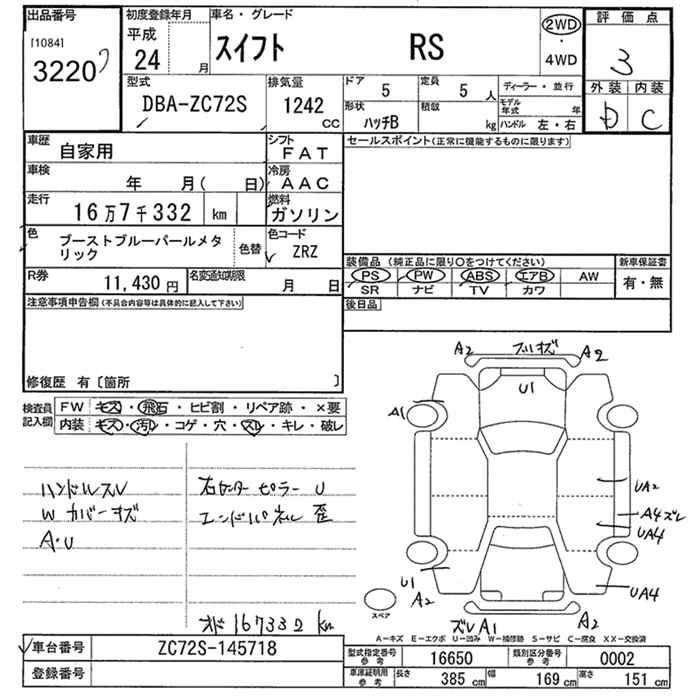 出品番号
[1084]
3220
初度登録年月
平成
24 月
車名・グレード
スイフト RS
2WD
・
4WD
評価点
3
外装 内装
D C
型式
DBA-ZC72S
排気量
1242
CC
ドア
5
定員
5 人
形状
ハッチB
積載
kg
ディーラー・並行
モデル年式 年
ハンドル 左・右
車歴
自家用
シフト
FAT
車検
年 月( 日)
冷房
AAC
走行
16万7千332 km
燃料
ガソリン
色
ブーストブルーパールメタリック
色替
色コード
ZRZ
R券
11,430 円
名変通知期限
月 日
セールスポイント(正常に機能するものに限ります)
装備品(純正品に限り○をつけてください)
PS PW ABS エアB AW
SR ナビ TV カワ
新車保証書
有・無
後日品
注意事項申告欄(不具合内容等は具体的に記入して下さい)
修復歴 有〔箇所 〕
検査員記入欄
FW キズ・飛石・ヒビ割・リペア跡・×要
内装 キズ・汚レ・コゲ・穴・スレ・キレ・破レ
ハンドルスレ
Wカバーキズ
A・U
右センターピラー U
エンドパネル 歪
オド 167332 km
A2 A2
U1
A1
UA2
A4 ズレ
UA4
U1
A2
UA4
スペア
ズレ A1
A2
A-キズ E-エクボ U-凹み W-補修跡 S-サビ C-腐食 XX-交換済
車台番号
ZC72S-145718
登録番号
型式指定番号 参考
16650
類別区分番号 参考
0002
車庫証明用 参考
長さ 385 cm
幅 169 cm
高さ 151 cm